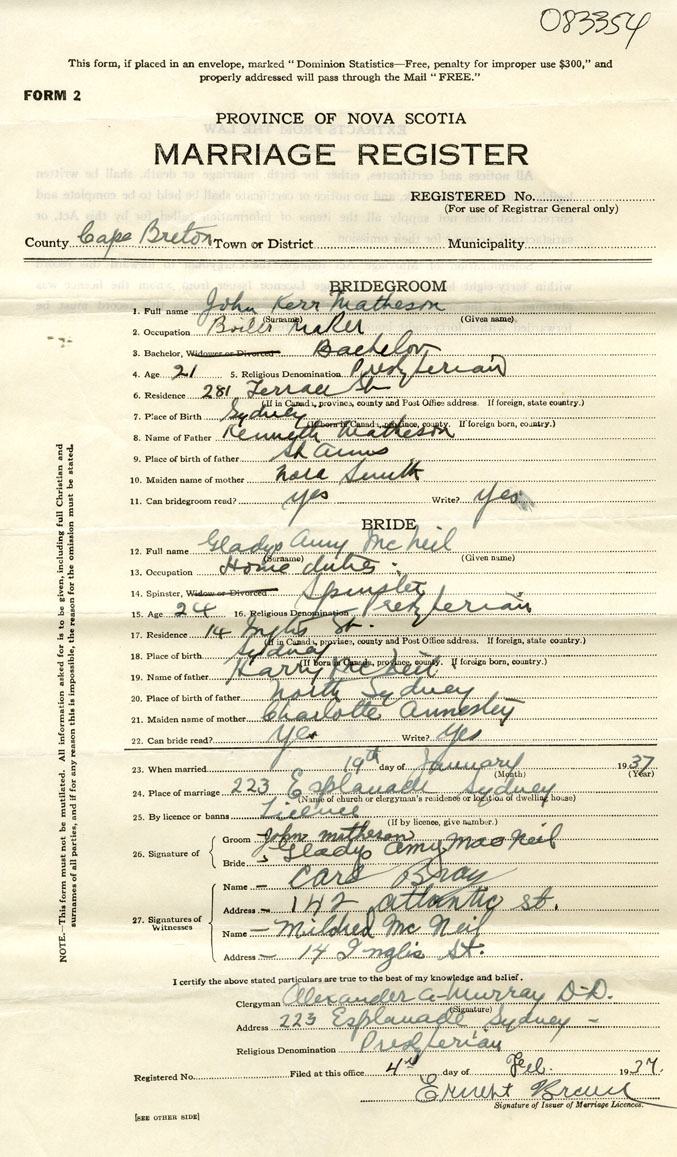 083354
This form, if placed in an envelope, marked "Dominion Statistics—Free, penalty for improper use $300," and
properly addressed will pass through the Mail "FREE."
FORM 2
PROVINCE OF NOVA SCOTIA
MARRIAGE REGISTER
REGISTERED No.
(For use of Registrar General only)
County Cape Breton Town or District Municipality
BRIDEGROOM
1. Full name John Kerr Matheson
(Surname) (Given name)
2. Occupation Boiler Maker
3. Bachelor, Widower or Divorced Bachelor
4. Age 21 5. Religious Denomination Presbyterian
6. Residence 281 Terrace St
(If in Canada, province, county and Post Office address. If foreign, state country.)
7. Place of Birth Sydney
(If born in Canada, province, county. If foreign born, country.)
8. Name of Father Kenneth Matheson
9. Place of birth of father St Anns
10. Maiden name of mother Nora Smith
11. Can bridegroom read? yes Write? yes
BRIDE
12. Full name Gladys Amy McNeil
(Surname) (Given name)
13. Occupation Home duties.
14. Spinster, Widow or Divorced Spinster
15. Age 24 16. Religious Denomination Presbyterian
17. Residence 14 Inglis St.
(If in Canada, province, county and Post Office address. If foreign, state country.)
18. Place of birth Sydney
(If born in Canada, province, county. If foreign born, country.)
19. Name of father Harry McNeil
20. Place of birth of father North Sydney
21. Maiden name of mother Charlotte Annesley
22. Can bride read? Yes Write? Yes
23. When married 19th day of January 1937
(Month) (Year)
24. Place of marriage 223 Esplanade Sydney
(Name of church or clergyman's residence or location of dwelling house)
25. By licence or banns Licence
(If by licence, give number.)
26. Signature of Groom John Matheson
Bride Gladys Amy MacNeil
27. Signatures of Witnesses
Name — Carl Bray
Address — 142 Atlantic St.
Name — Mildred McNeil
Address — 14 Inglis St.
I certify the above stated particulars are true to the best of my knowledge and belief.
Clergyman Alexander A. Murray D.D.
(Signature)
Address 223 Esplanade Sydney —
Religious Denomination Presbyterian
Registered No. Filed at this office 4th day of Feb. 1937.
Ernest
Signature of Issuer of Marriage Licences.
[SEE OTHER SIDE]
NOTE.—This form must not be mutilated. All information asked for is to be given, including full Christian and
surnames of all parties, and if for any reason this is impossible, the reason for the omission must be stated.